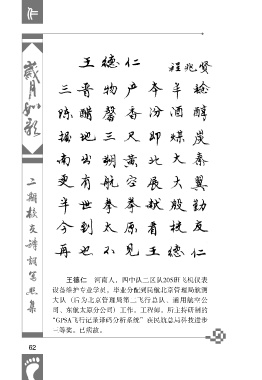 作
歲月如歌
二期校友詩詞書畫集
王德仁
程兆贤
三晋物产本丰
陈醋馨香汾酒醇
掘地三尺即煤炭
南出朔黄北大秦
更有航空展大翼
半世拳拳献殷勤
今到太原看校友
再也不见王德仁
王德仁　河南人，四中队二区队205班飞机仪表
设备维护专业学员。毕业分配到民航北京管理局航测
大队（后为北京管理局第二飞行总队、通用航空公
司、东航太原分公司）工作。工程师。所主持研制的
“GPSA飞行记录译码分析系统”获民航总局科技进步
三等奖。已病故。
62